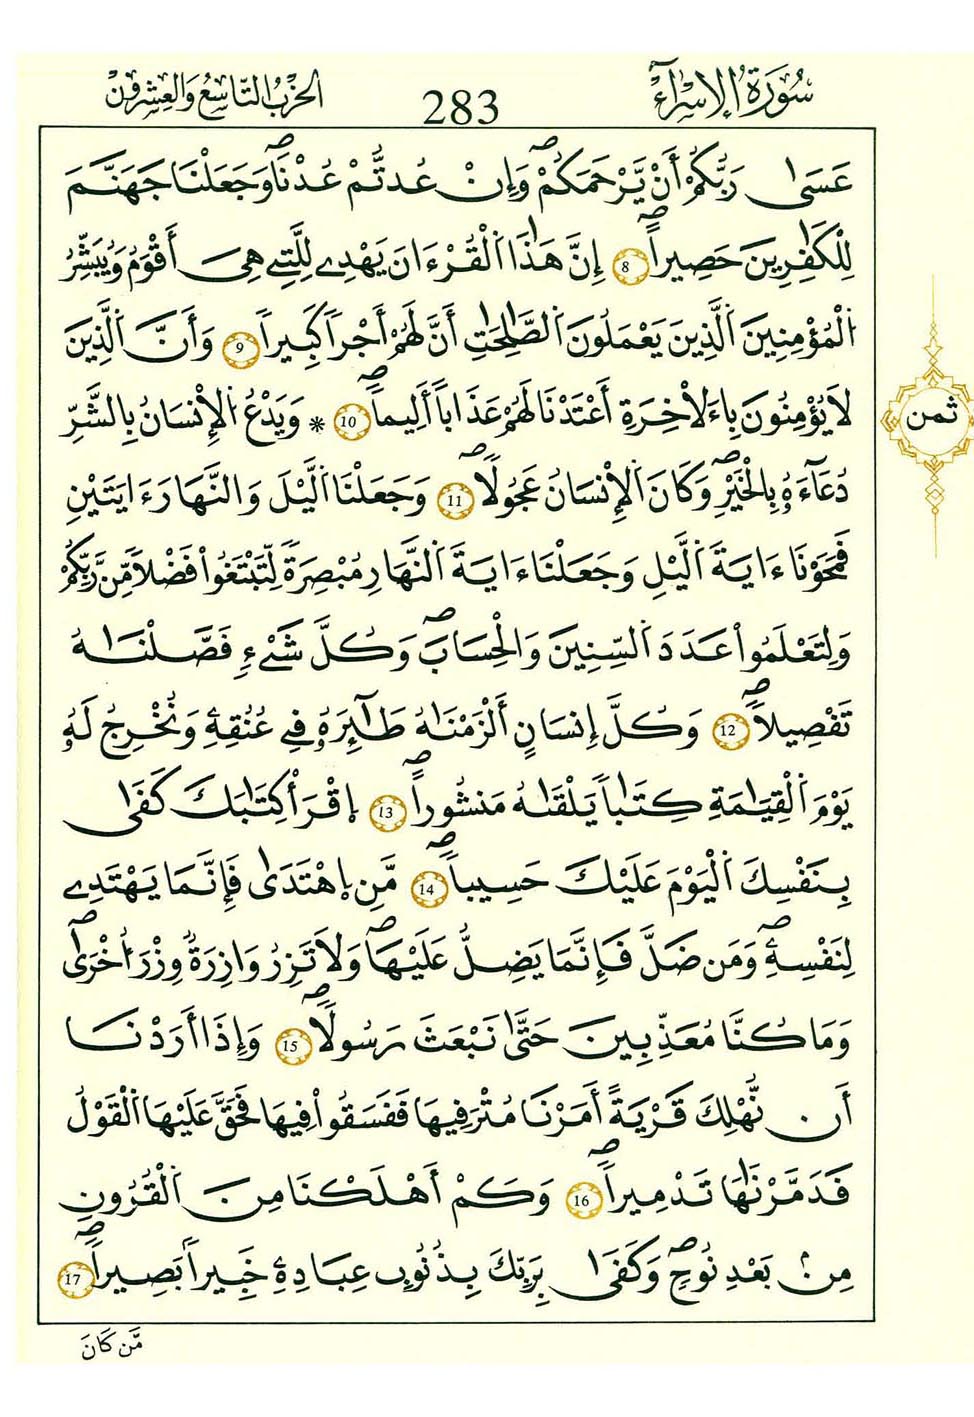 سُورَةُ الْإِسْرَاءِ
283
الحِزْبُ التَّاسِعُ وَالْعِشْرُونَ
عَسَىٰ رَبُّكُمُۥٓ أَنْ يَّرْحَمَكُمْۖ وَإِنْ عُدتُّمْ عُدْنَاۖ وَجَعَلْنَا جَهَنَّمَ
لِلْكَٰفِرِينَ حَصِيراًۖ 8 إِنَّ هَٰذَا اَ۬لْقُرْءَانَ يَهْدِے لِلَّتِے هِىَ أَقْوَمُ وَيُبَشِّرُ
اُ۬لْمُؤْمِنِينَ اَ۬لذِينَ يَعْمَلُونَ اَ۬لصَّٰلِحَٰتِ أَنَّ لَهُمُۥٓ أَجْراً كَبِيراً 9 وَأَنَّ اَ۬لذِينَ
لَا يُؤْمِنُونَ بِاءَلَاخِرَةِ أَعْتَدْنَا لَهُمْ عَذَاباً أَلِيماًۖ 10 * وَيَدْعُ اُ۬لْإِنْسَانُ بِالشَّرِّ
دُعَآءَهُۥ بِالْخَيْرِۖ وَكَانَ اَ۬لْإِنْسَانُ عَجُولاًۖ 11 وَجَعَلْنَا اَ۬لَّيْلَ وَالنَّهَارَ ءَايَتَيْنِ
فَمَحَوْنَا ءَايَةَ اَ۬لَّيْلِ وَجَعَلْنَا ءَايَةَ اَ۬لنَّهَارِ مُبْصِرَةً لِّتَبْتَغُواْ فَضْلاً مِّن رَّبِّكُمْ
وَلِتَعْلَمُواْ عَدَدَ اَ۬لسِّنِينَ وَالْحِسَابَۖ وَكُلَّ شَےْءٍ فَصَّلْنَٰهُ
تَفْصِيلاًۖ 12 وَكُلَّ إِنسَانٍ أَلْزَمْنَٰهُ طَٰٓئِرَهُۥ فِے عُنُقِهِۦ وَنُخْرِجُ لَهُۥ
يَوْمَ اَ۬لْقِيَٰمَةِ كِتَٰباً يَلْقَىٰهُ مَنشُوراًۖ 13 اِ۪قْرَأْ كِتَٰبَكَ كَفَىٰ
بِنَفْسِكَ اَ۬لْيَوْمَ عَلَيْكَ حَسِيباًۖ 14 مَّنِ اِ۪هْتَدَىٰ فَإِنَّمَا يَهْتَدِے
لِنَفْسِهِۦۖ وَمَن ضَلَّ فَإِنَّمَا يَضِلُّ عَلَيْهَاۖ وَلَا تَزِرُ وَازِرَةٌ وِزْرَ أُخْرَىٰۖ
وَمَا كُنَّا مُعَذِّبِينَ حَتَّىٰ نَبْعَثَ رَسُولاًۖ 15 وَإِذَا أَرَدْنَا
أَن نُّهْلِكَ قَرْيَةً أَمَرْنَا مُتْرَفِيهَا فَفَسَقُواْ فِيهَا فَحَقَّ عَلَيْهَا اَ۬لْقَوْلُ
فَدَمَّرْنَٰهَا تَدْمِيراًۖ 16 وَكَمْ أَهْلَكْنَا مِنَ اَ۬لْقُرُونِ
مِنۢ بَعْدِ نُوحٍۖ وَكَفَىٰ بِرَبِّكَ بِذُنُوبِ عِبَادِهِۦ خَبِيراً بَصِيراًۖ 17
ثمن
مَّن كَانَ